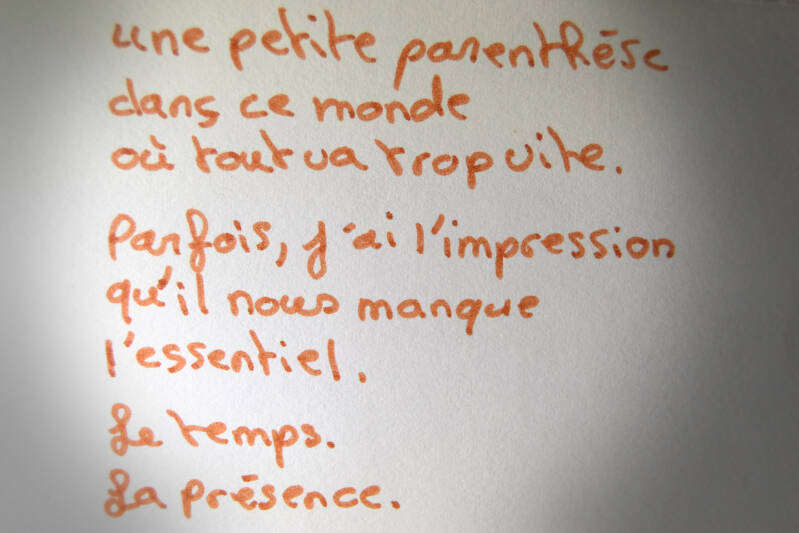 une petite parenthèse
dans ce monde
où tout va trop vite.
Parfois, j'ai l'impression
qu'il nous manque
l'essentiel.
Le temps.
La présence.